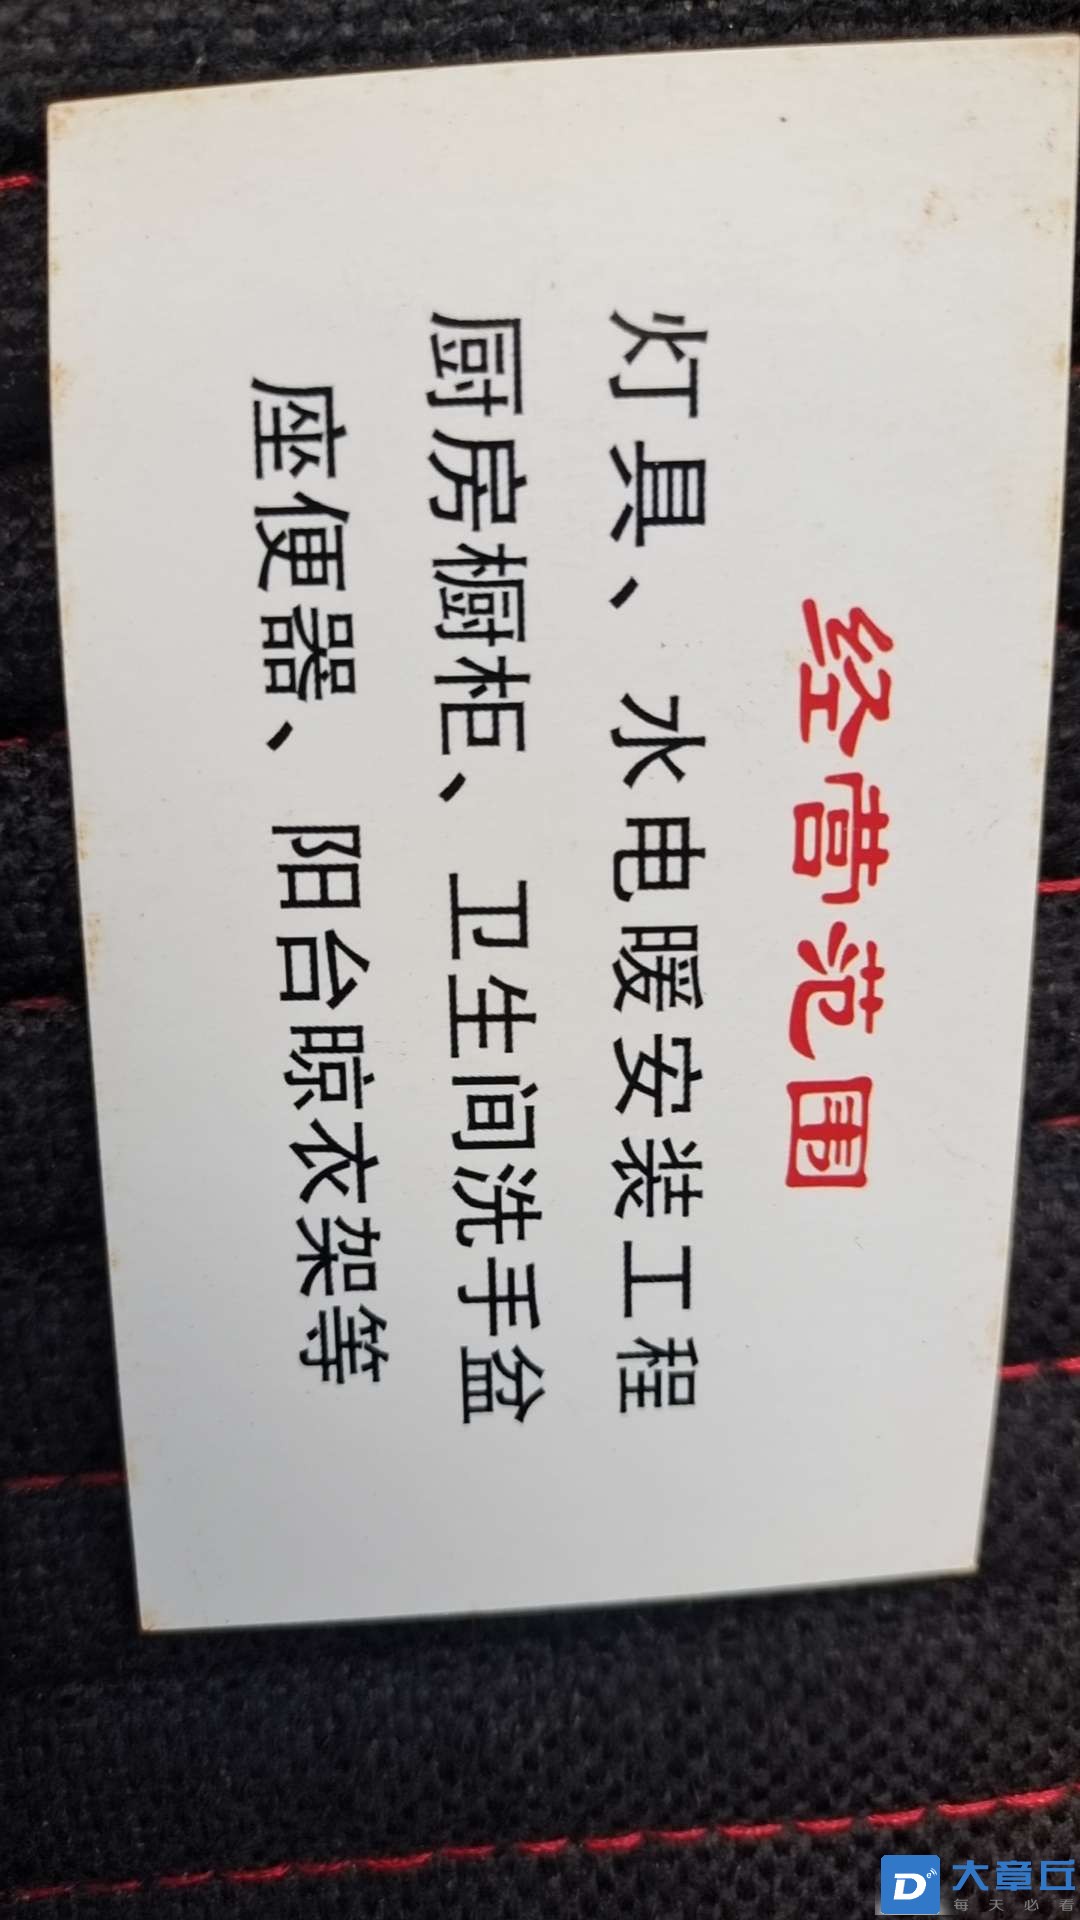 经营范围
灯具、水电暖安装工程
厨房橱柜、卫生间洗手盆
座便器、阳台晾衣架等
大章丘
每天必看